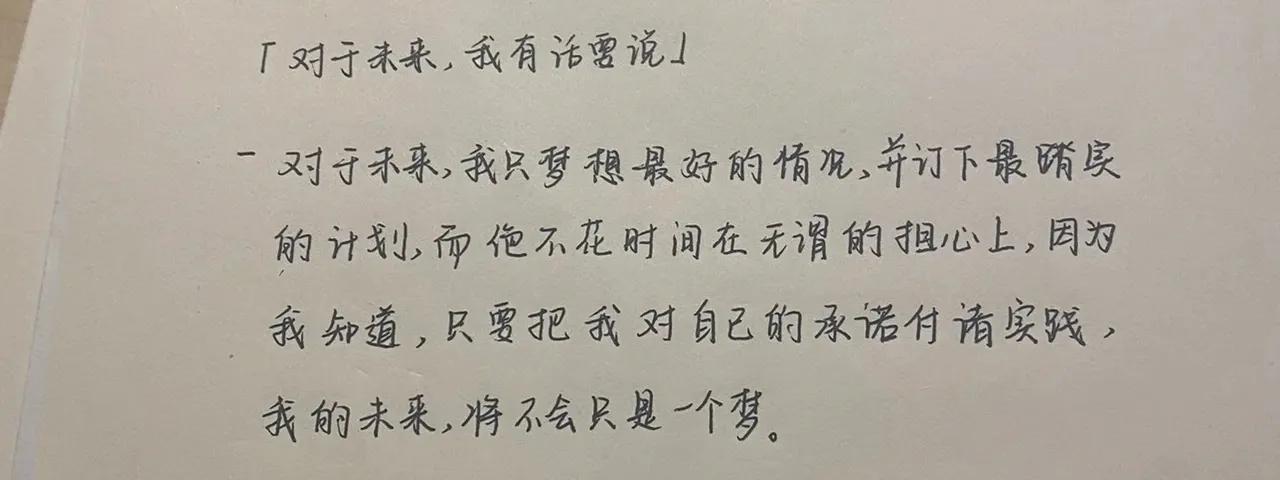 「对于未来,我有话要说」
一 对于未来,我只梦想最好的情况,并订下最踏实
的计划,而绝不花时间在无谓的担心上,因为
我知道,只要把我对自己的承诺付诸实践,
我的未来,将不会只是一个梦。